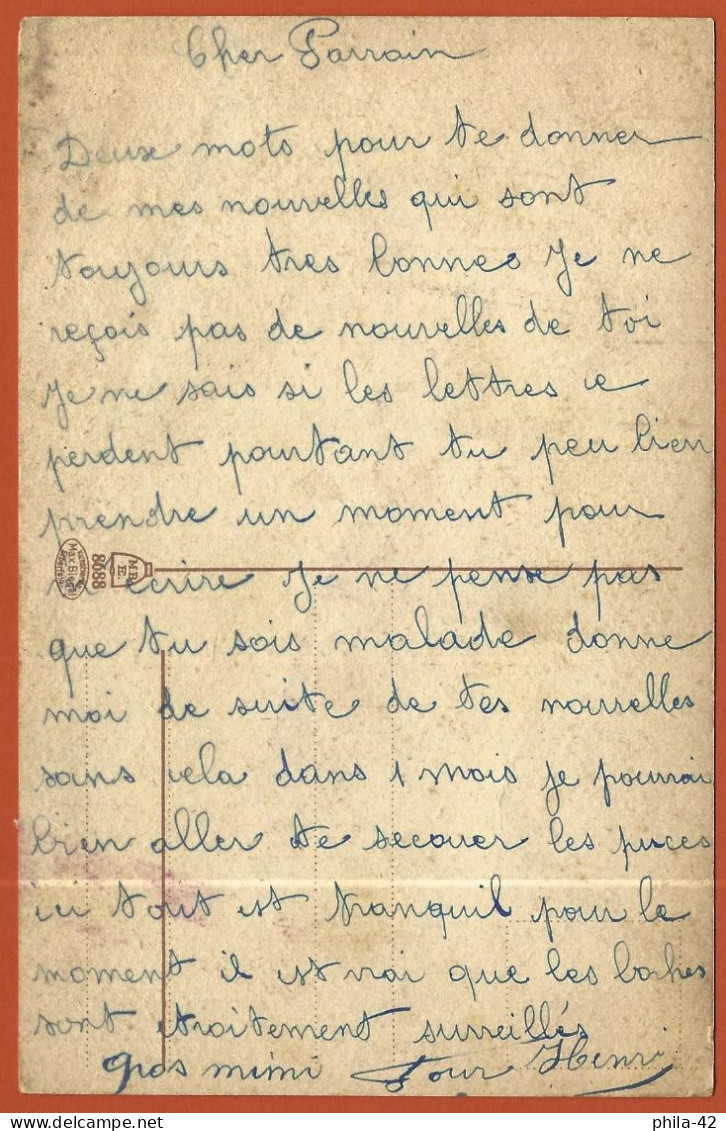 Cher Parrain
Deux mots pour te donner
de mes nouvelles qui sont
toujours tres bonnes Je ne
reçois pas de nouvelles de toi
Je ne sais si les lettres ce
perdent pourtant tu peu bien
prendre un moment pour
m'écrire Je ne pense pas
que tu sois malade donne
moi de suite de tes nouvelles
sans cela dans 1 mois je pourrai
bien aller te secouer les puces
ici tout est tranquil pour le
moment il est vrai que les boches
sont etroitement surveillés
gros mimi Henri
M.B.
E.
8688
phila-42